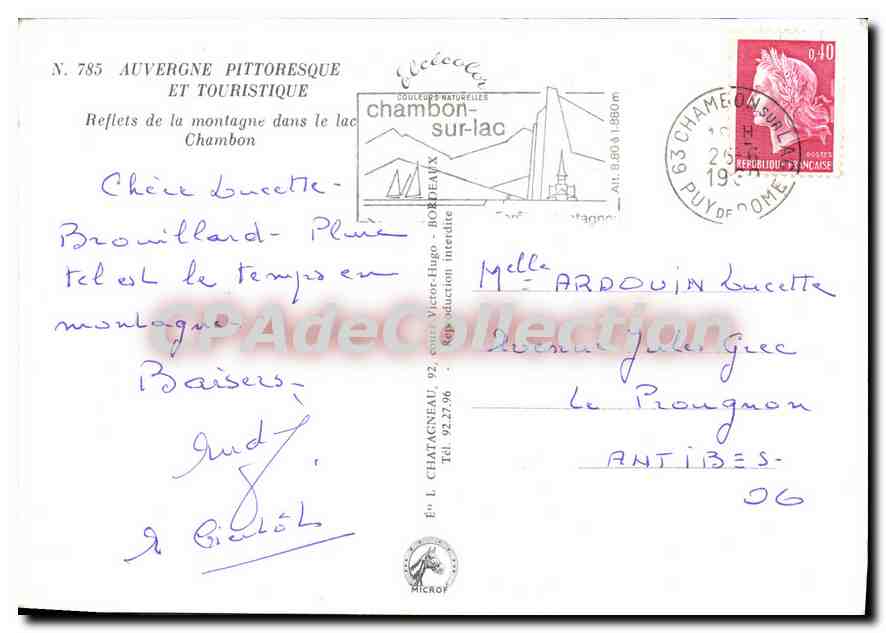 N. 785 AUVERGNE PITTORESQUE
ET TOURISTIQUE
Reflets de la montagne dans le lac
Chambon
Elcécolor
COULEURS NATURELLES
chambon-
sur-lac
Alt. 880 à 1.860m
63 CHAMBON SUR LAC
18 H
PUY DE DOME
0,40
POSTES
REPUBLIQUE FRANÇAISE
Chère Lucette -
Brouillard - Pluie
tel est le temps en
montagne
Baisers -
à bientôt
Elle ARDOUIN Lucette
Avenue Jules Grec
Le Prougnon
ANTIBES -
06
Ets L. CHATAGNEAU, 92, cours Victor-Hugo - BORDEAUX
Tél. 92.27.96 - Reproduction interdite
MICROF
CPAdeCollection